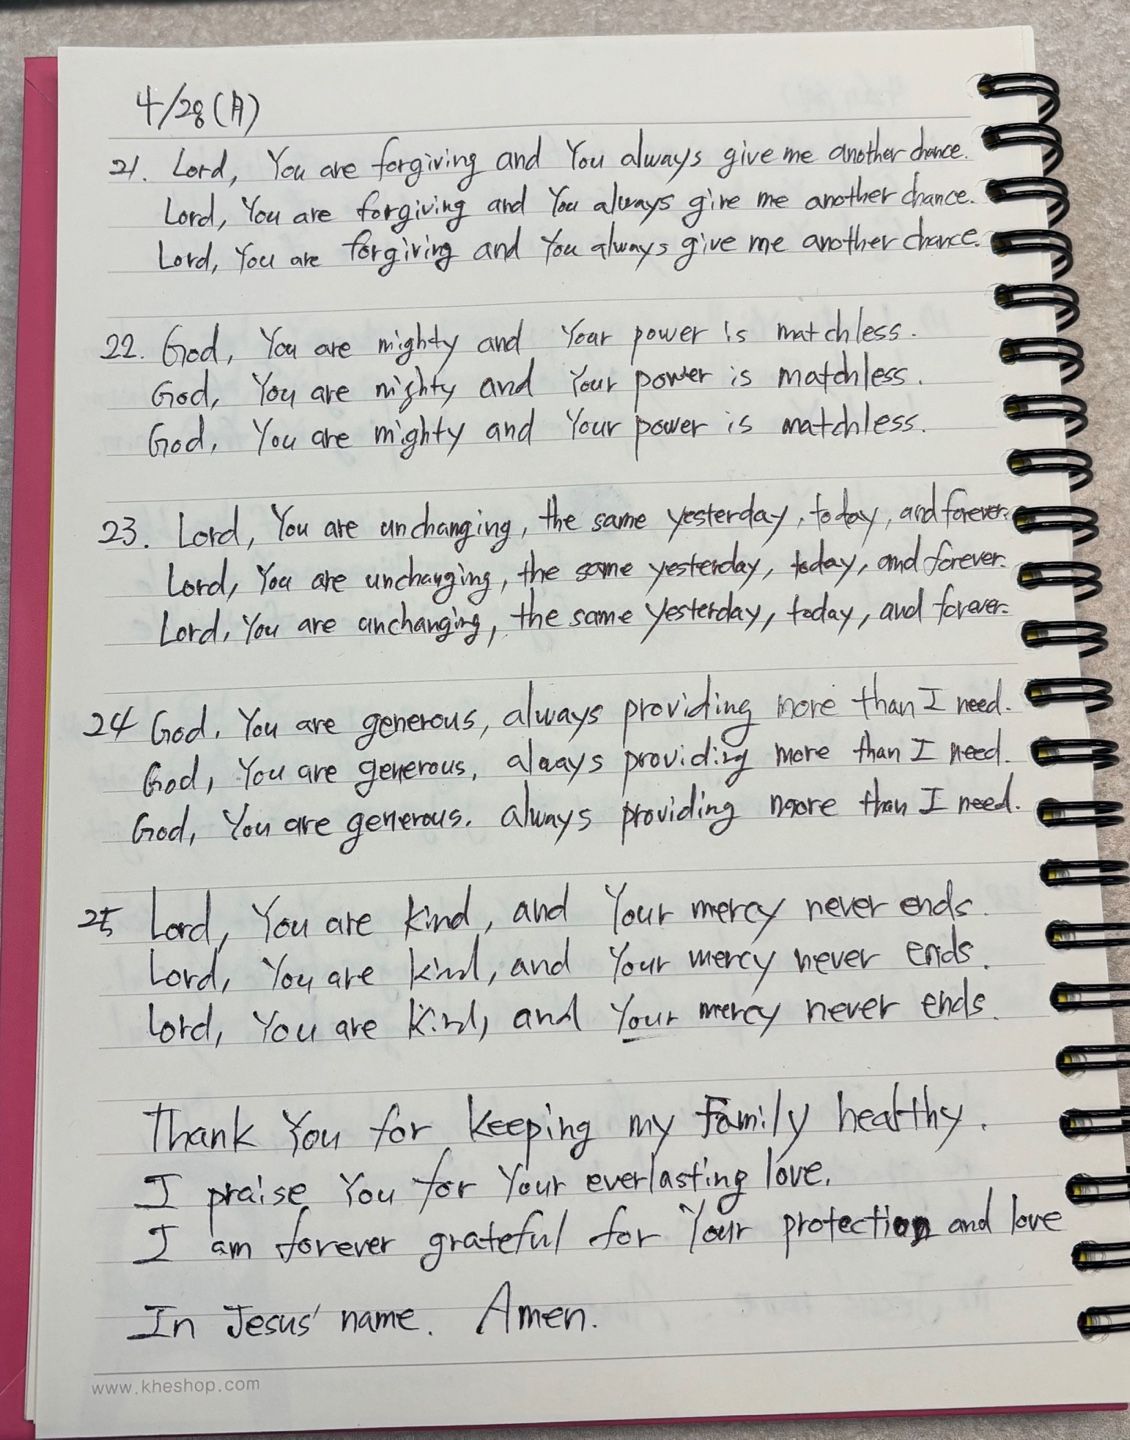 4/28(月)
21. Lord, You are forgiving and You always give me another chance.
Lord, You are forgiving and You always give me another chance.
Lord, You are forgiving and You always give me another chance.
22. God, You are mighty and Your power is matchless.
God, You are mighty and Your power is matchless.
God, You are mighty and Your power is matchless.
23. Lord, You are unchanging, the same yesterday, today, and forever.
Lord, You are unchanging, the same yesterday, today, and forever.
Lord, You are unchanging, the same yesterday, today, and forever.
24 God, You are generous, always providing more than I need.
God, You are generous, always providing more than I need.
God, You are generous, always providing more than I need.
25 Lord, You are kind, and Your mercy never ends.
Lord, You are kind, and Your mercy never ends.
Lord, You are kind, and Your mercy never ends.
Thank You for keeping my family healthy.
I praise You for Your everlasting love.
I am forever grateful for Your protection and love
In Jesus' name. Amen.
www.kheshop.com